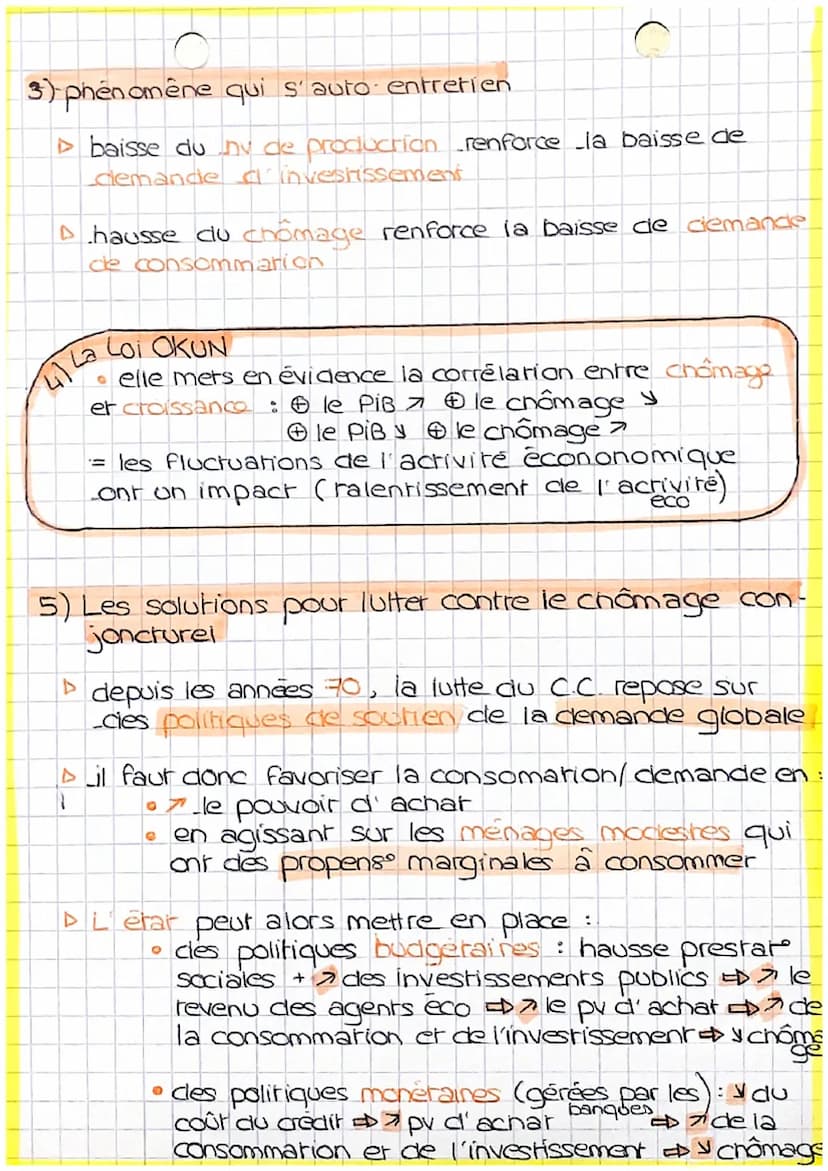 3) phénomène qui s'auto-entretien
▷ baisse du nv de production renforce la baisse de
demande d'investissement
▷ hausse du chômage renforce la baisse de demande
de consommation
4) La Loi OKUN
• elle mets en évidence la corrélation entre chômage
et croissance : ⊕ le PiB ↗ ⊕ le chômage ↘
⊕ le PiB ↘ ⊕ le chômage ↗
= les fluctuations de l'activité écononomique
ont un impact (ralentissement de l'activité)
eco
5) Les solutions pour lutter contre le chômage con-
joncturel
▷ depuis les années 70, la lutte du C.C. repose sur
des politiques de soutien de la demande globale
▷ il faut donc favoriser la consomation/demande en :
• ↗ le pouvoir d'achat
• en agissant sur les ménages modestes qui
ont des propens° marginales à consommer
▷ L'état peut alors mettre en place :
• des politiques budgétaires : hausse prestat°
sociales + ↗ des investissements publics ⇨ ↗ le
revenu des agents éco ⇨ ↗ le pv d'achat ⇨ ↗ de
la consommation et de l'investissement ⇨ ↘ chôma
ge
• des politiques monétaires (gérées par les) : ↘ du
banques
coût du crédit ⇨ ↗ pv d'achat ⇨ ↗ de la
consommation et de l'investissement ⇨ ↘ chômage